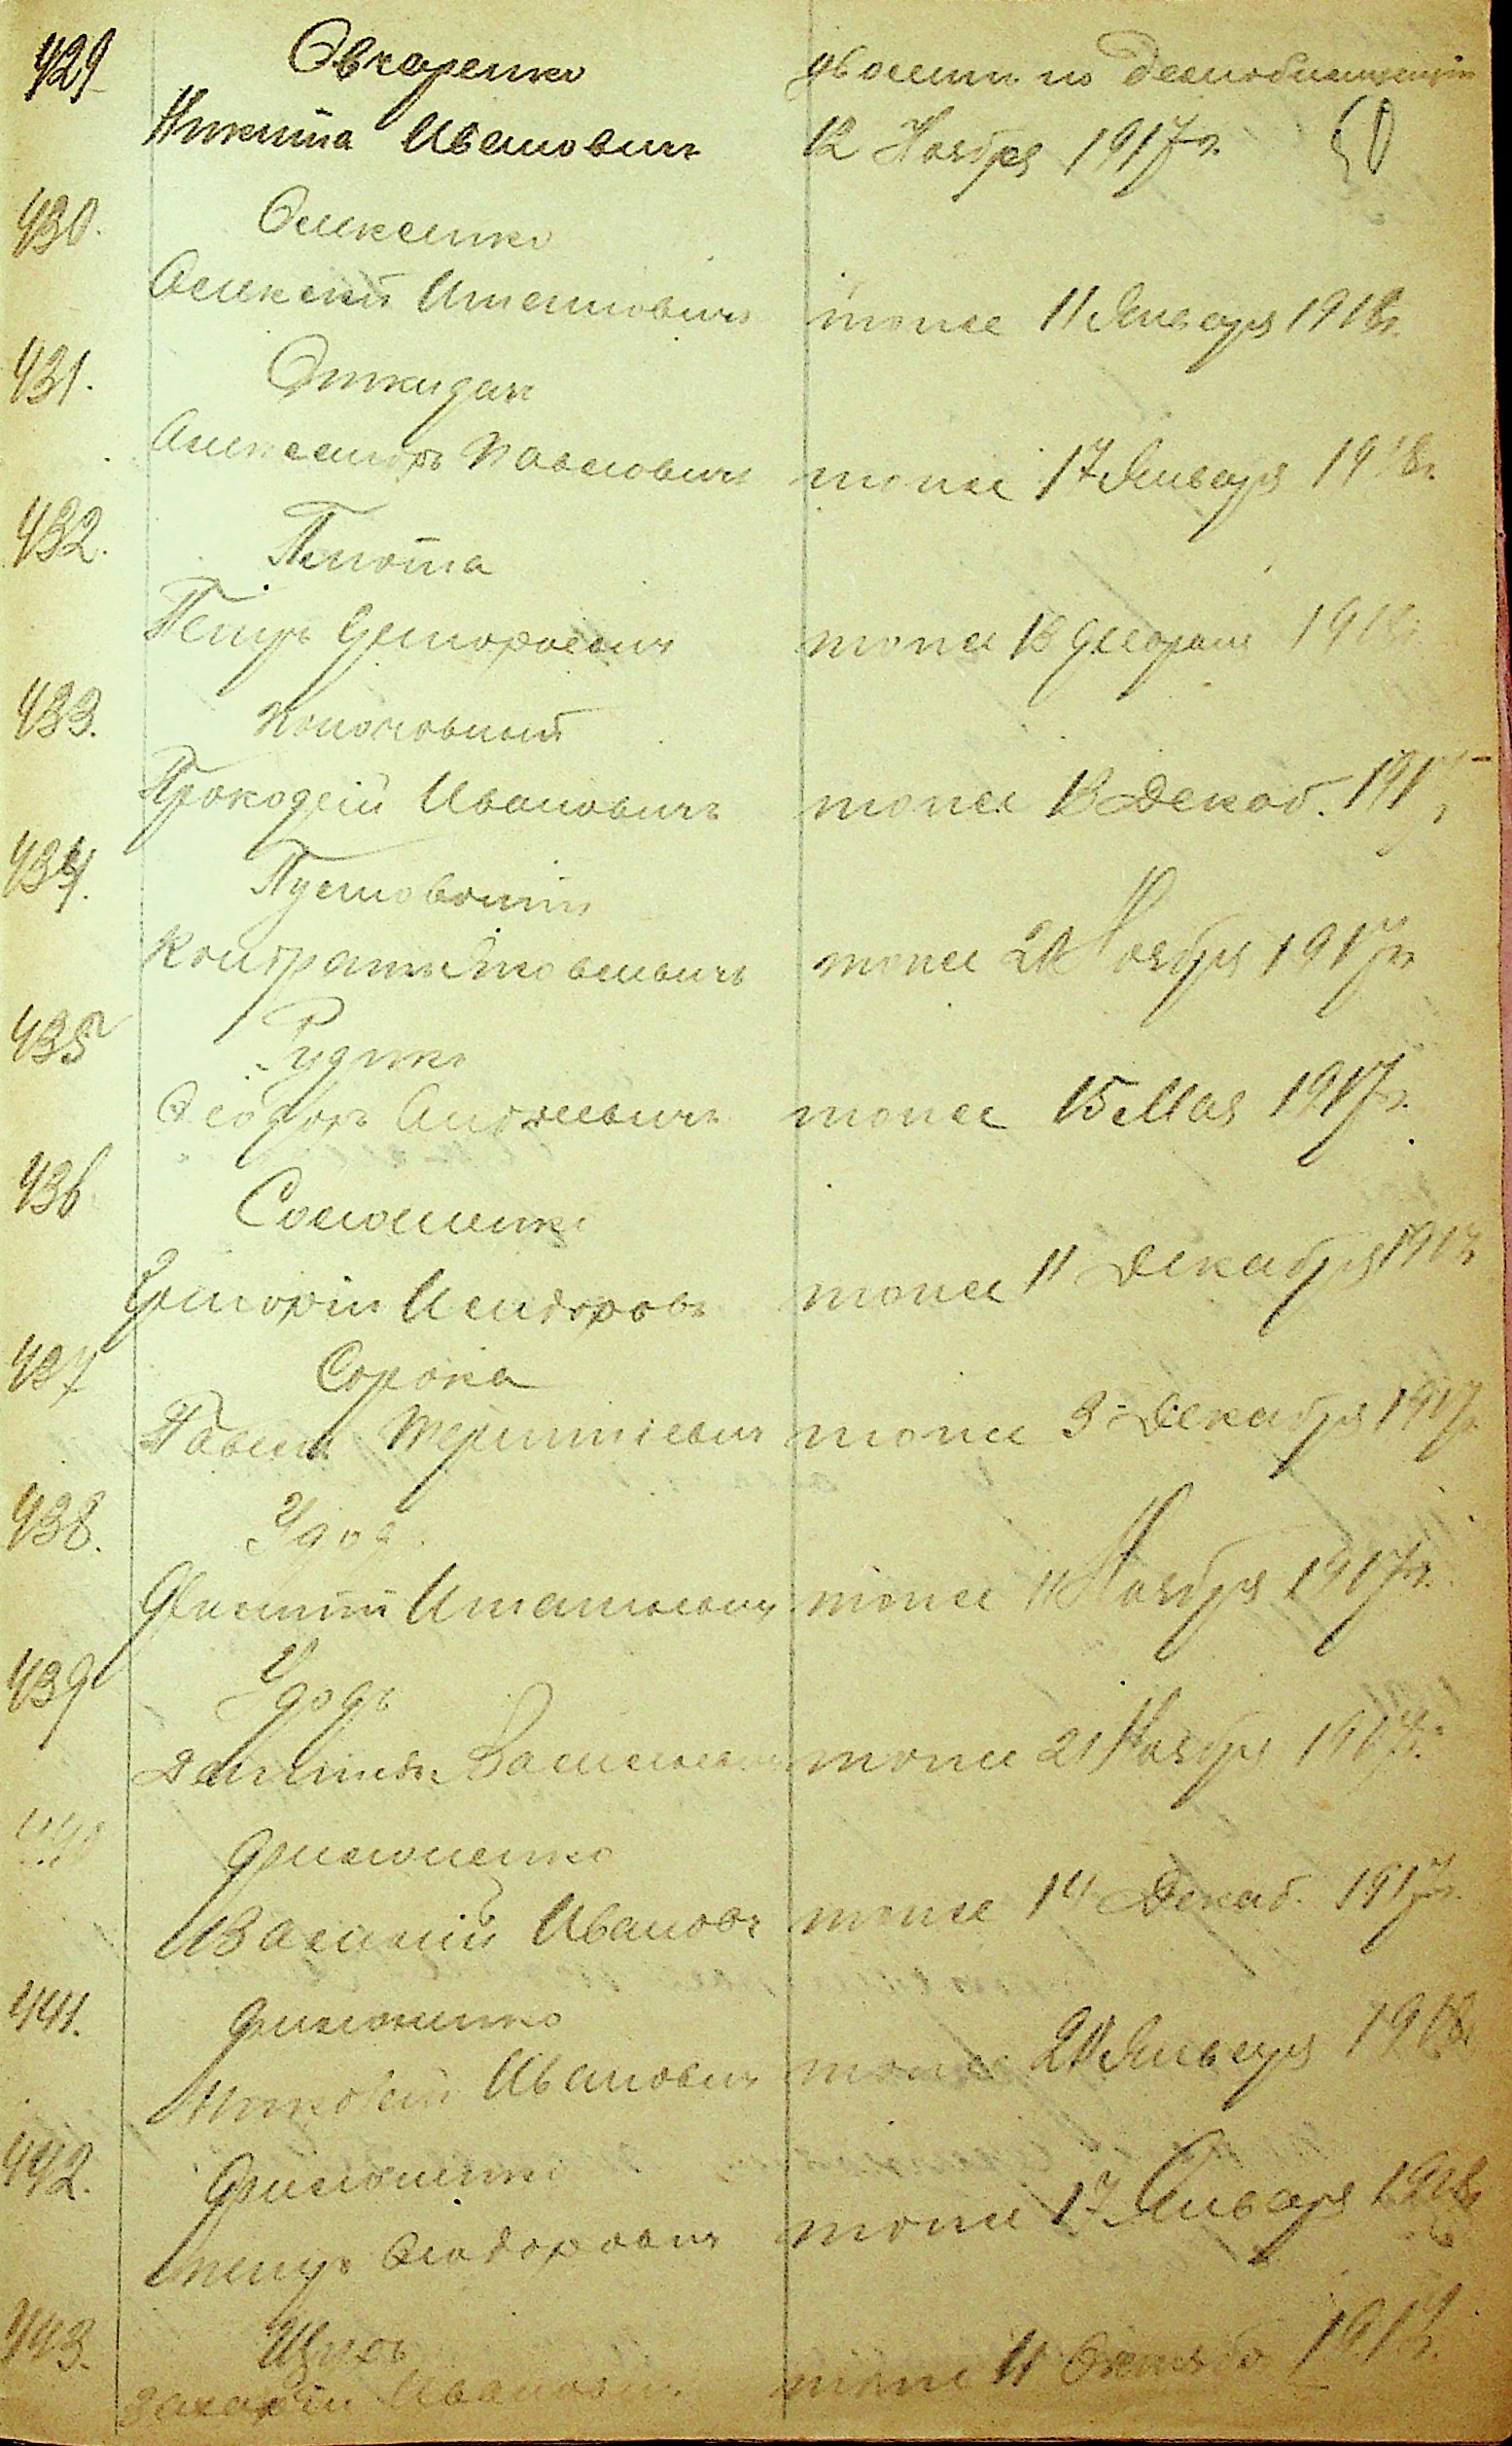 429 Овчаренко уволенъ по демобилизаціи
Никита Ивановичъ 12 Ноября 1917 г.
430. Олексенко
Алексей Игнатовичъ тоже 11 Января 1918 г.
431. Откидачъ
Александръ Павловичъ тоже 17 Января 1918 г.
432. Плюта
Петръ Григорьевичъ тоже 18 Февраля 1918
433.
Прокофій Ивановичъ тоже 18 Декаб. 1917
434. Пустовойтъ
Кондратъ Яковлевичъ тоже Ноября 1917 г.
435 Рудько
Феодоръ Андреевичъ тоже 15 Мая 1917 г.
436 Солошенко
Григорій Исидоровъ тоже 11 Декабря 1917
437 Сорока
Павелъ Терентіевичъ тоже 3 Декабря 1917
438. Удод
Игнатьевичъ тоже 11 Ноября 1917 г.
439 Удодъ
Васильевичъ тоже 21 Ноября 1917 г.
440 Филоненко
Ивановъ тоже 14 Декаб. 1917
441. Филоненко
Николай Ивановичъ тоже 21 Января 1918
442. Филоненко
Петръ Феодоровичъ тоже 17 Января 1918
443.
Захарій Ивановичъ тоже 11 Октяб.